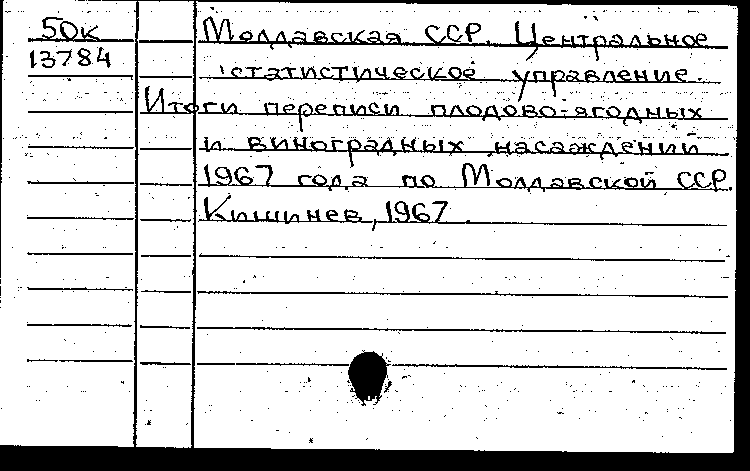 50к
13784
Молдавская ССР. Центральное
статистическое управление.
Итоги переписи плодово-ягодных
и виноградных насаждений
1967 года по Молдавской ССР.
Кишинев, 1967.